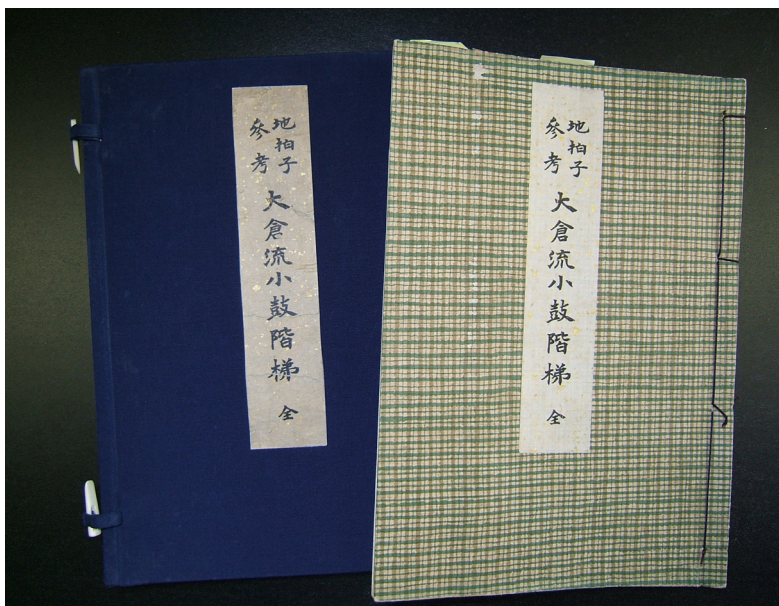 地拍子
參考
大倉流小鼓階梯 全
地拍子
參考
大倉流小鼓階梯 全